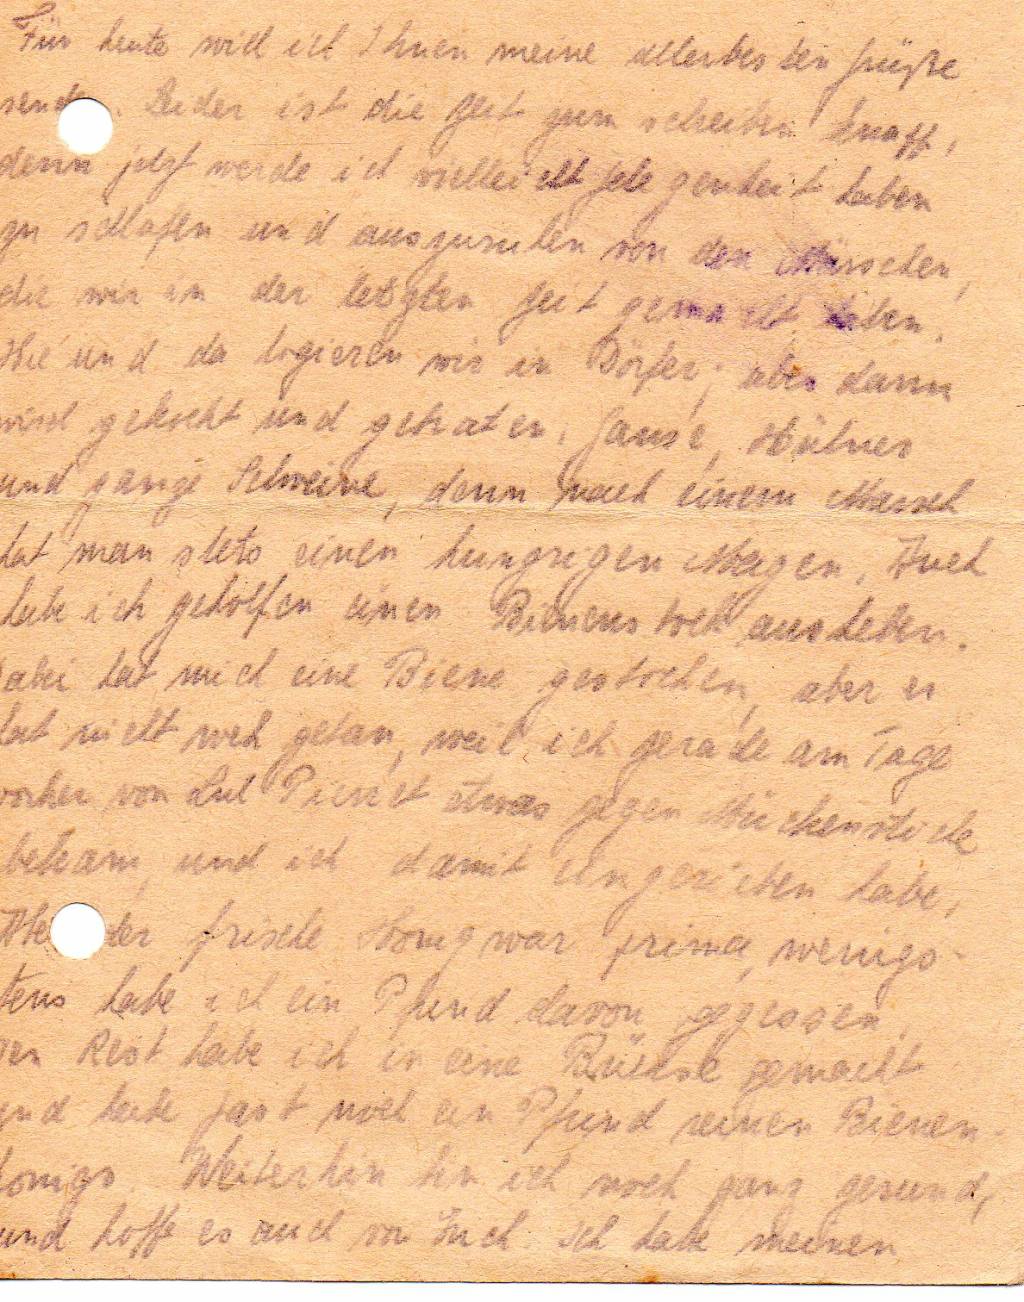 Für heute will ich Ihnen meine allerbesten Grüße
send. Leider ist die Zeit zum schreiben knapp,
denn jetzt werde ich vielleicht Gelegenheit haben
zu schlafen und auszuruhen von den Märschen,
die wir in der letzten Zeit gemacht haben.
Hie und da logieren wir in Dörfer, aber dann
wird gekocht und gebraten, Gänse, Hühner
und ganze Schweine, denn nach einem Marsch
hat man stets einen hungrigen Magen. Auch
habe ich geholfen einen Bienenstock ausheben.
dabei hat mich eine Biene gestochen, aber es
hat nicht weh getan, weil ich gerade am Tage
vorher von etwas gegen Mückenstiche
bekam, und ich damit eingerieben habe,
der frische Honig war prima, wenigs-
tens habe ich ein Pfund davon gegessen,
den Rest habe ich in eine Büchse gemacht
und habe fast noch ein Pfund reinen Bienen-
honigs. Weiterhin bin ich noch ganz gesund,
und hoffe es auch von Euch. Ich habe meinen